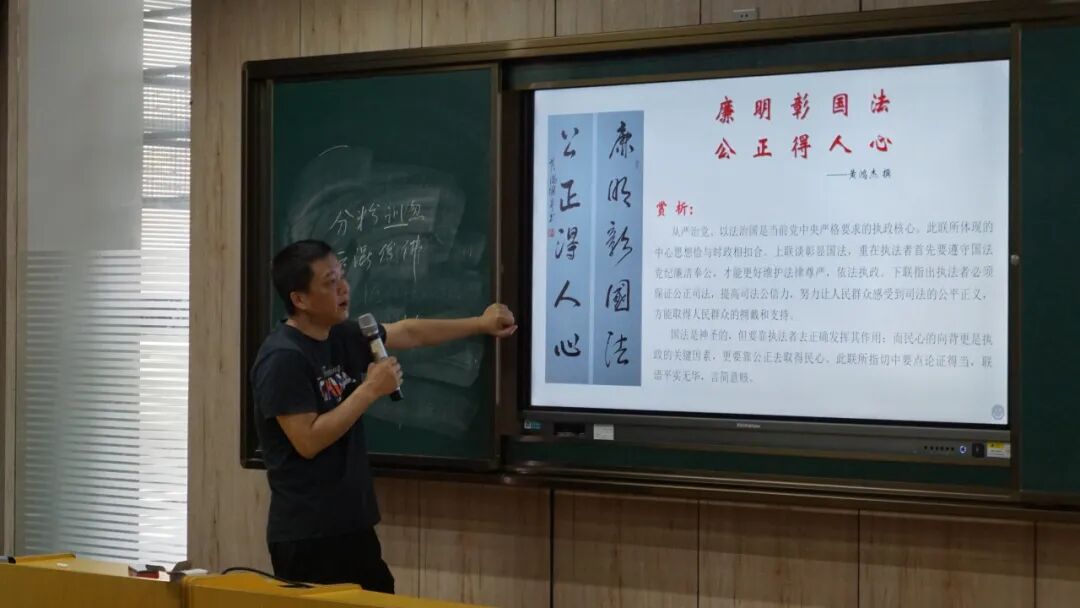 廉明彰国法
公正得人心
——黄鸿杰 撰
赏析：
从严治党、以法治国是当前党中央严格要求的执政核心。此联所体现的
中心思想恰与时政相扣合。上联谈彰显国法，重在执法者首先要遵守国法
党纪廉洁奉公，才能更好维护法律尊严，依法执政。下联指出执法者必须
保证公正司法，提高司法公信力，努力让人民群众感受到司法的公平正义，
方能取得人民群众的拥戴和支持。
国法是神圣的，但要靠执法者去正确发挥其作用；而民心的向背更是执
政的关键因素，更要靠公正去取得民心。此联所指切中要点论证得当，联
语平实无华，言简意赅。
廉明彰國法
公正得人心